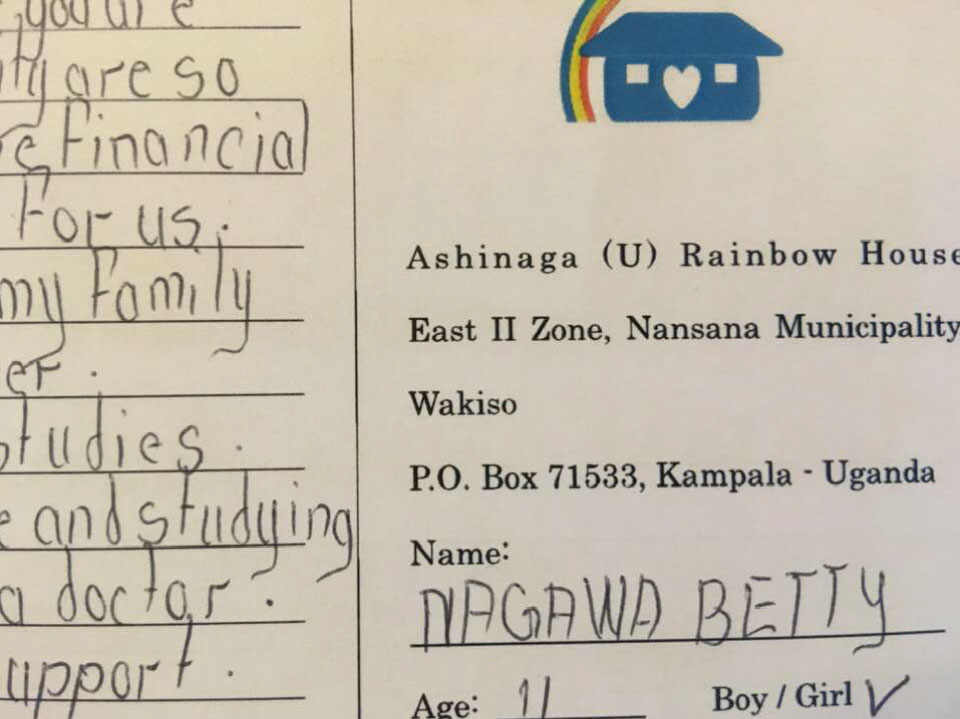 you are
are so
financial
For us.
my family
er.
studies.
and studying
a doctor.
upport.
Ashinaga (U) Rainbow House
East II Zone, Nansana Municipality
Wakiso
P.O. Box 71533, Kampala - Uganda
Name:
NAGAWA BETTY
Age: 11 Boy / Girl ✓